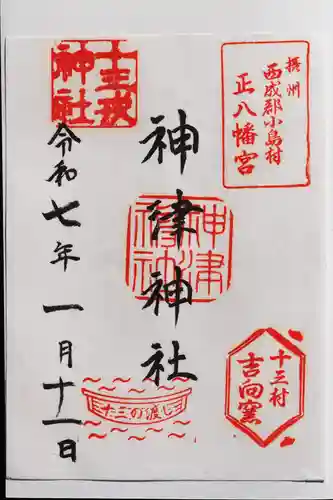 摂州
西成郡小島村
正八幡宮
神津神社
神津神社
十三村
吉向窯
十三の渡し
十三戎神社
令和七年一月十一日